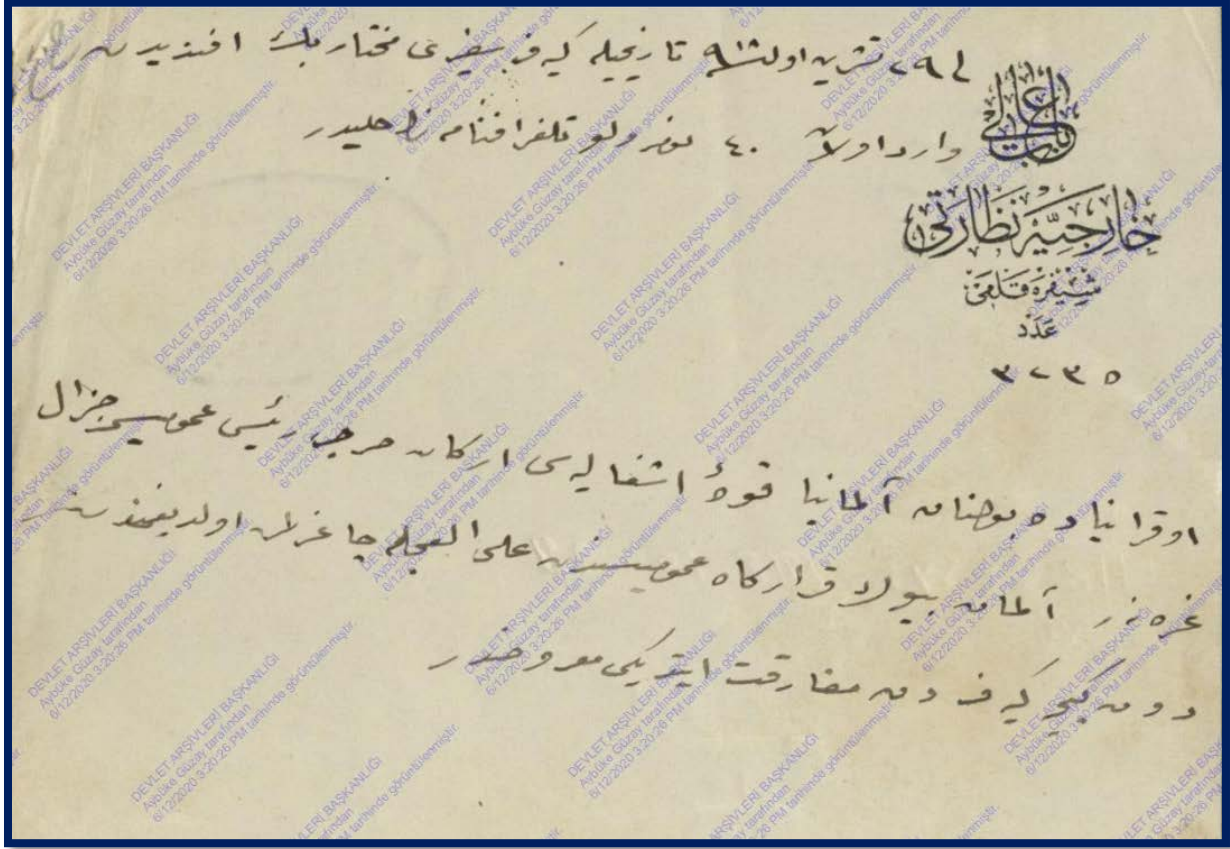 فی ٢٩ تشرین اول سنه ٩١٨ تاریخیله کیف سفیری مختار بك افندیدن
وارد اولان ٤٠ نومرولو تلغرافنامه حلیدر
باب عالی
خارجیه نظارتی
شیفره قلمی
عدد
٣٢٣٥
اوقرانیاده بولنان آلمانیا قوۀ اشغالیه‌سی ارکان حرب رئیس عمومیسی جنرال
غره‌نر آلمان بیوك قرارکاه عمومیسندن علی العجله چاغرلمش اولدیغندن
دون کیجه کیفدن مفارقت ایتدیکی معروضدر
DEVLET ARŞİVLERİ BAŞKANLIĞI
Aybüke Güzay tarafından
6/12/2020 3:20:26 PM tarihinde görüntülenmiştir.